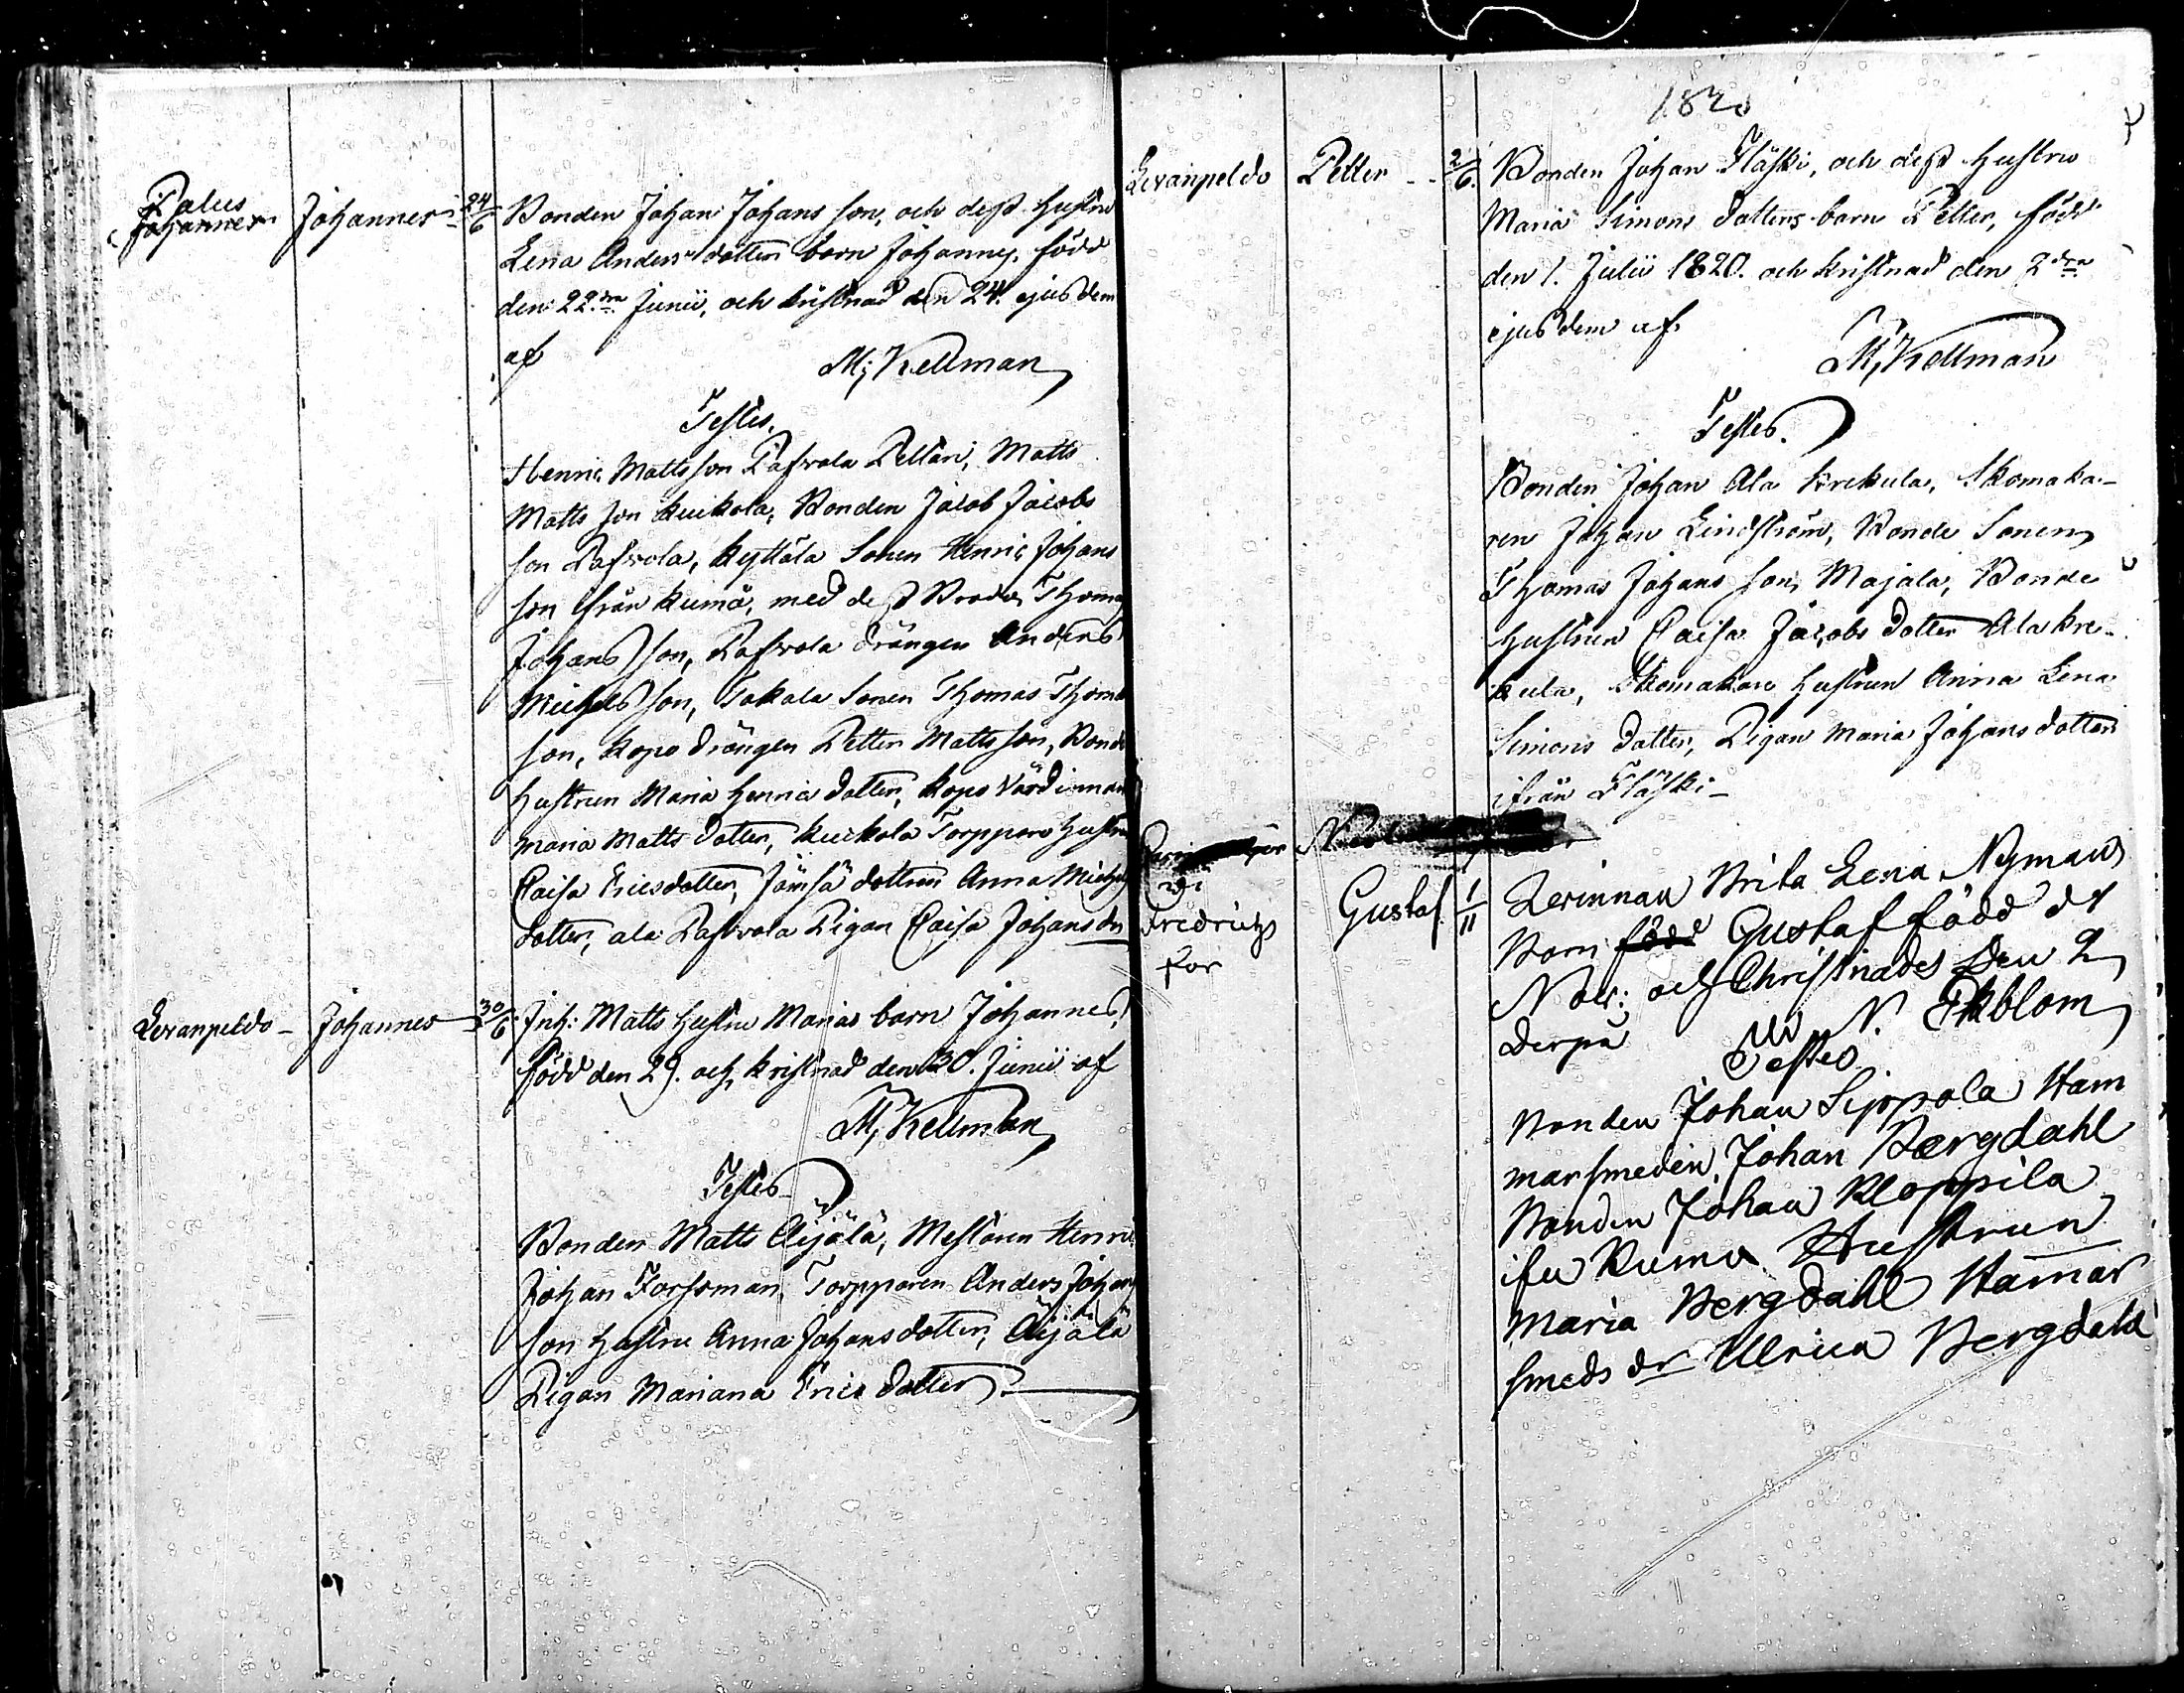 Palus
Johannes Johannes 24/6 Bonden Johan Johans son, och dess hustru
Lena Anders dotters barn Johannes, född
den 22.dra Junii, och kristnad den 24. ejusdem
af M: Kellman
Testes.
Henric Mattsson Pafvola Pellari, Matts
Matts son Kuckola, Bonden Jacob Jacobs
son Pafvola, Kyttälä Sonen Henric Johans
son från Kumå, med dess Broder Thomas
Johans son, Pafvola drängen Anders
Michels son, Takala Sonen Thomas Thomas
son, Kopo drängen Petter Matts son, Bonde
Hustrun Maria Henrics dotter, Kopo Värdinnan
Maria Matts dotter, Kuckola Torppare hustru
Caisa Ericsdotter, Jämsä dottren Anna Michels
dotter, ala Pafvola Pigan Caisa Johans dr
Levanpeldo - Johannes 30/6 Inh: Matts hustru Marias barn Johannes,
född den 29. och kristnad den 30. Junii af
M, Kellman
Testes
Bonden Matts Äijälä, Mestaren Henric
Johan Forssman, Torpparen Anders Johans
son hustru Anna Johansdotter, Äijälä
Pigan Mariana Erics dotter
1820
Levanpeldo Petter - - 2/6. Bonden Johan Fläski, och dess hustru
Maria Simons dotters barn Petter, född
den 1. Julii 1820. och kristnad den 2dra
ejusdem af
M, Kellman
Testes.
Bonden Johan Ala Krekula, Skomaka-
ren Johan Lindström, Bonde Sonen
Thomas Johans son Majala, Bonde
Hustrun Caisa Jacobs dotter Ala Kre-
kula, Skomakare hustrun Anna Lena
Simons dotter, Pigan Maria Johansdotter
ifrån Fläski -
Fredrichs
for
Gustaf 1/11 Brita Lena Nyman
Barn född Gustaf född d 1
Nov: och Christnades den 2
derpå af N. Ekblom
Testes
Bonden Johan Sippola Ham
marsmeden Johan Bergdahl
Bonden Johan Kloppila
ifrn Kumo Hustrun
Maria Bergdahl Hamar
smeds dr Ulrica Bergdahl